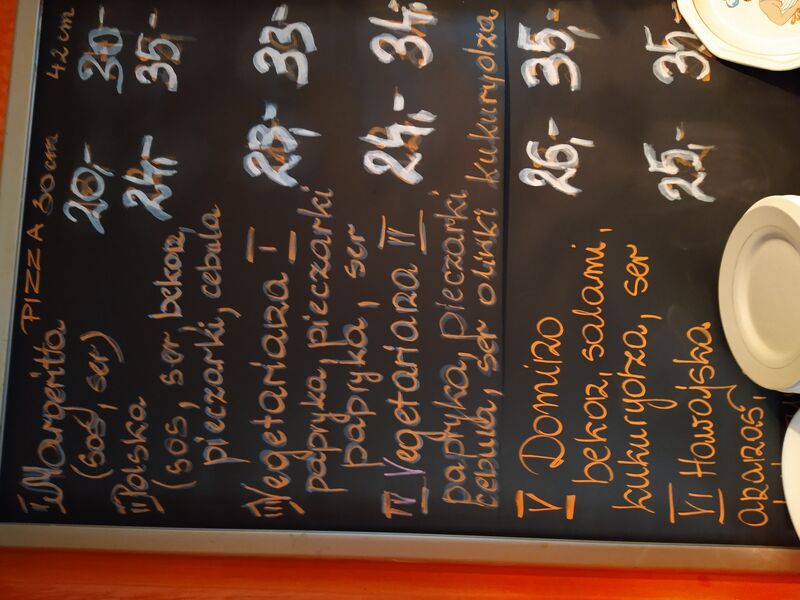 PIZZA 30cm 42cm
I Margeritta 20,- 30-
(sos, ser)
II Polska 24,- 35,-
(sos, ser bekon,
pieczarki, cebula
III Vegetariana I 23,- 33-
papryka, pieczarki
papryka, ser
IV Vegetariana II 24,- 34,-
papryka, pieczarki
cebula, ser oliwki kukurydza
V Domino 26,- 35,-
bekon, salami,
kukurydza, ser
VI Hawajska 25,- 35,-
ananas,